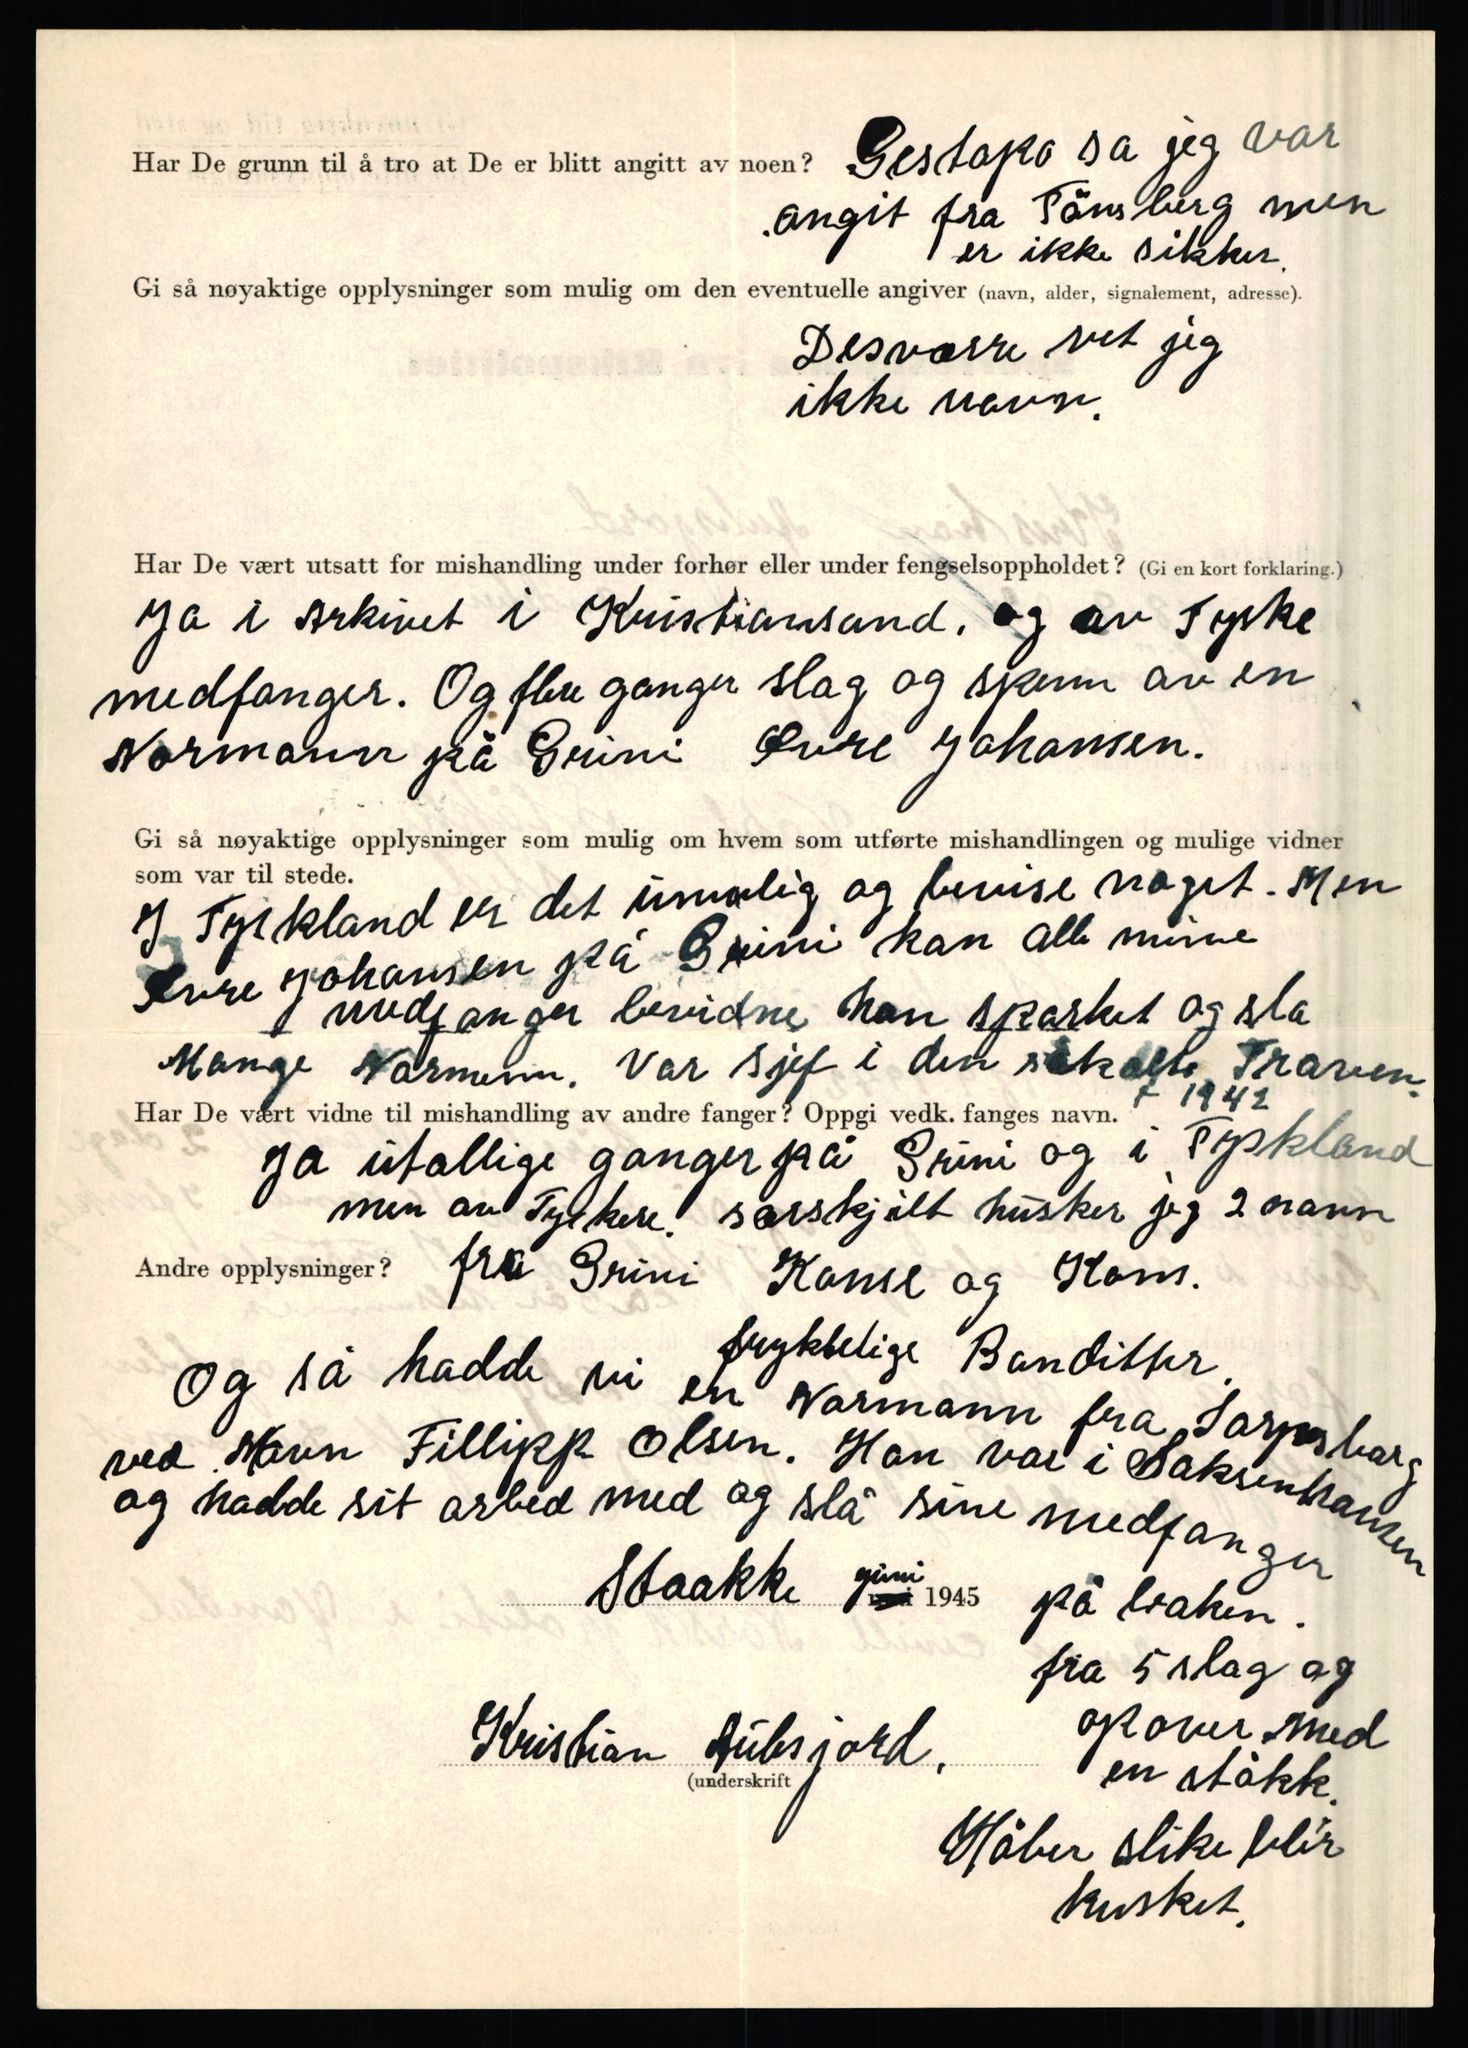 Har De grunn til å tro at De er blitt angitt av noen? Gestapo sa jeg var
angit fra Tönsberg men
er ikke sikker.
Gi så nøyaktige opplysninger som mulig om den eventuelle angiver (navn, alder, signalement, adresse).
Desværre vet jeg
ikke navn.
Har De vært utsatt for mishandling under forhør eller under fengselsoppholdet? (Gi en kort forklaring.)
Ja i Arkivet i Kristiansand. og av Tyske
medfanger. Og flere ganger slag og spenn av en
Normann på Grini Johansen.
Gi så nøyaktige opplysninger som mulig om hvem som utførte mishandlingen og mulige vidner
som var til stede.
I Tyskland er det umulig og bevise noget. Men
Johansen på Grini kan alle mine
medfanger bevidne han sparket og slo
Mange Normenn. Var sjef i den såkalte Traven.
1942
Har De vært vidne til mishandling av andre fanger? Oppgi vedk. fanges navn.
Ja utallige ganger på Grini og i Tyskland
men av Tyskere. særskjilt husker jeg 2 navn
Andre opplysninger? fra Grini Kunse og Kons.
fryktelige Banditter.
Og så hadde vi en Normann fra Sarpsborg
ved Navn Fillipp Olsen. Han var i Saksenhausen
og hadde sit arbed med og slå sine medfanger
Staakke juni 1945
på baken.
fra 5 slag og
opover med
en ståkk.
Kristian Aubsjord.
(underskrift
Håber slike blir
husket.